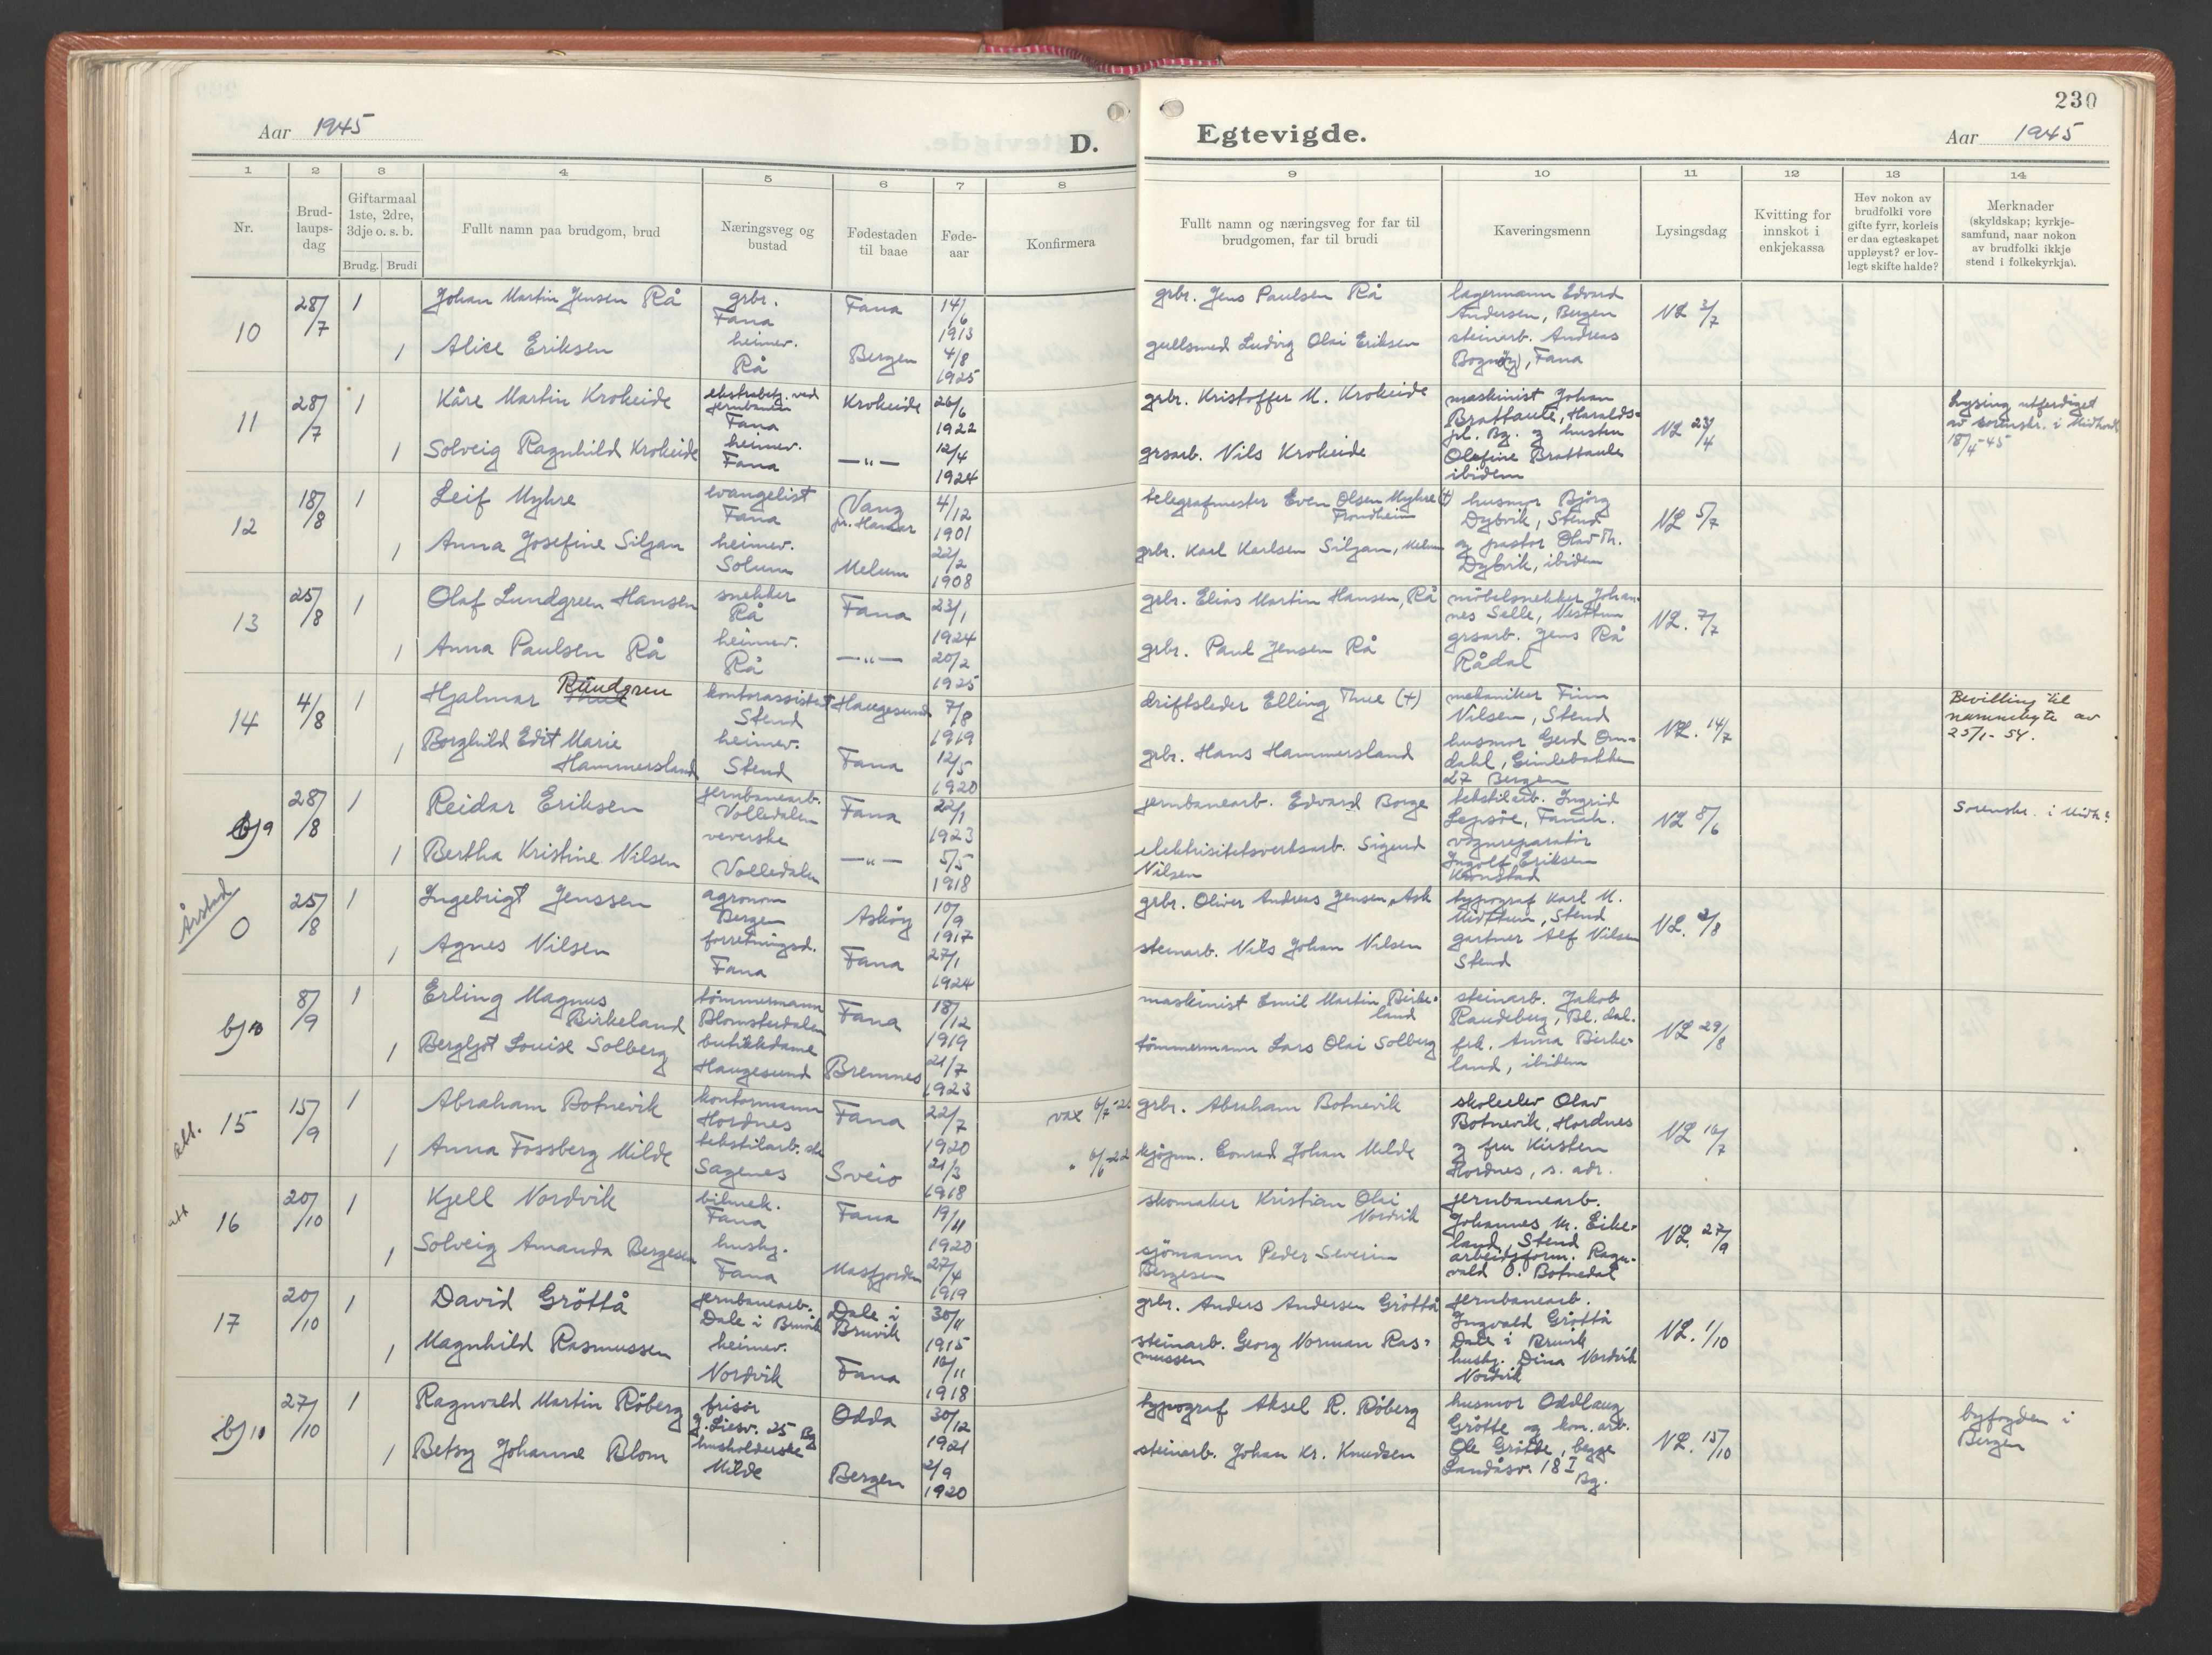 230
Aar 1945
D.
Egtevigde.
Aar 1945
1 2 3 4 5 6 7 8 9 10 11 12 13 14
Nr.
Brud-
laups-
dag
Giftarmaal
1ste, 2dre,
3dje o. s. b.
Brudg. Brudi
Fullt namn paa brudgom, brud
Næringsveg og
bustad
Fødestaden
til baae
Føde-
aar
Konfirmera
Fullt namn og næringsveg for far til
brudgomen, far til brudi
Kaveringsmenn
Lysingsdag
Kvitting for
innskot i
enkjekassa
Hev nokon av
brudfolki vore
gifte fyrr, korleis
er daa egteskapet
uppløyst? er lov-
legt skifte halde?
Merknader
(skyldskap; kyrkje-
samfund, naar nokon
av brudfolki ikkje
stend i folkekyrkja).
10
28/7
1
Johan Martin Jensen Rå
grbr.
Fana
Fana
14/6
1913
grbr. Jens Paulsen Rå
lagermann Edvard
Andersen, Bergen
NL 3/7
1
Alice Eriksen
heimev.
Rå
Bergen
4/8
1925
gullsmed Ludvig Olai Eriksen
steinarb. Andreas
Fana
11
28/7
1
Kåre Martin Krokeide
ekstrabetj. ved
jernbanen
Fana
Krokeide
26/6
1922
grbr. Kristoffer M. Krokeide
maskinist Johan
Brattaule, Haralds-
pl. Bg. og hustru
Olefine Brattaule
ibidem
NL 23/4
Lysing utferdiget
av sorenskr. i Midhordl.
18/4-45
1
Solveig Ragnhild Krokeide
heimev.
Fana
—"—
12/4
1924
grsarb. Nils Krokeide
12
18/8
1
Leif Myhre
evangelist
Fana
Vang
pr. Hamar
4/12
1901
telegrafmester Even Olsen Myhre (+)
Trondheim
husmor Bjørg
Dybvik, Stend
og pastor Olav Th.
Dybvik, ibidem
NL 5/7
1
Anna Josefine Siljan
heimev.
Solum
Melum
22/2
1908
grbr. Karl Karlsen Siljan, Melum
13
25/8
1
Olaf Lundgreen Hansen
snekker
Rå
Fana
23/1
1924
grbr. Elias Martin Hansen, Rå
möbelsnekker Johan-
nes Selle, Nesttun
grsarb. Jens Rå
Rådal
NL. 7/7
1
Anna Paulsen Rå
heimev.
Rå
—"—
20/2
1925
grbr. Paul Jensen Rå
14
4/8
1
Hjalmar Thue Rundgren
kontorassistent
Stend
Haugesund
7/8
1919
driftsleder Elling Thue (+)
mekaniker Finn
Nilsen, Stend
husmor Gerd Om-
dahl, Gimlebakken
27 Bergen
NL. 14/7
Bevilling til
namnebyte av
25/1-54.
1
Borghild Edit Marie
Hammersland
heimev.
Stend
Fana
12/5
1920
grbr. Hans Hammersland
bj 9
28/8
1
Reidar Eriksen
jernbanearb.
Volledalen
Fana
22/1
1923
jernbanearb. Edvard Borge
tekstilarb. Ingrid
Lepsöe, Fanah.
vognreparatör
Ingolf Eriksen
Kronstad
NL 8/6
Sorenskr. i Midh.
1
Bertha Kristine Nilsen
veverske
Volledalen
—"—
5/5
1918
elektrisitetsverksarb. Sigurd
Nilsen
Årstad
0
25/8
1
Ingebrigt Jenssen
agronom
Bergen
Asköy
10/9
1917
grbr. Oliver Andreas Jensen, Ask
typograf Karl M.
Midttun, Stend
gartner Alf Nilsen
Stend
NL. 2/8
1
Agnes Nilsen
forretningsd.
Fana
Fana
27/1
1924
steinarb. Nils Johan Nilsen
bj 10
8/9
1
Erling Magnus
Birkeland
tömmermann
Blomsterdalen
Fana
18/12
1919
maskinist Emil Martin Birke-
land
steinarb. Jakob
Raudeberg, Bl. dal.
frk. Anna Birke-
land, ibidem
NL 29/8
1
Bergljot Louise Solberg
butikkdame
Haugesund
Bremnes
21/7
1923
tömmermann Lars Olai Solberg
att.
15
15/9
1
Abraham Botnevik
kontormann
Hordnes
Fana
22/7
1920
grbr. Abraham Botnevik
skoleelev Olav
Botnevik, Hordnes
og fru Kirsten
Hordnes, s. adr.
NL 16/7
1
Anna Fossberg Milde
tekstilarb.
Sagenes
Sveio
21/3
1918
kjöpm. Conrad Johan Milde
att
16
20/10
1
Kjell Nordvik
bilmek.
Fana
Fana
19/11
1920
skomaker Kristian Olai
Nordvik
jernbanearb.
Johannes M. Eike-
land, Stend
arbeidsform. Ragn-
vald O. Botnedal
NL. 27/9
1
Solveig Amanda Bergesen
hushj.
Fana
Masfjorden
27/4
1919
sjömann Peder Severin
Bergesen
17
20/10
1
David Gröttå
jernbanearb.
Dale i Bruvik
Dale i
Bruvik
30/11
1915
grbr. Anders Andersen Gröttå
jernbanearb.
Ingvald Gröttå
Dale i Bruvik
hushj. Dina Nordvik
Nordvik
NL. 1/10
1
Magnhild Rasmussen
heimev.
Nordvik
Fana
16/11
1918
steinarb. Georg Norman Ras-
mussen
bj 11
27/10
1
Ragnvald Martin Röberg
frisör
J. Liesv. 25 Bg
Odda
30/12
1921
typograf Aksel R. Röberg
husmor Oddlaug
Grötte og kom. arb.
Ole Grötte, begge
Landåsv. 18 I
Bg.
NL. 15/10
byfogden i
Bergen
1
Betsy Johanne Blom
husholderske
Milde
Bergen
2/9
1920
steinarb. Johan Kr. Knudsen